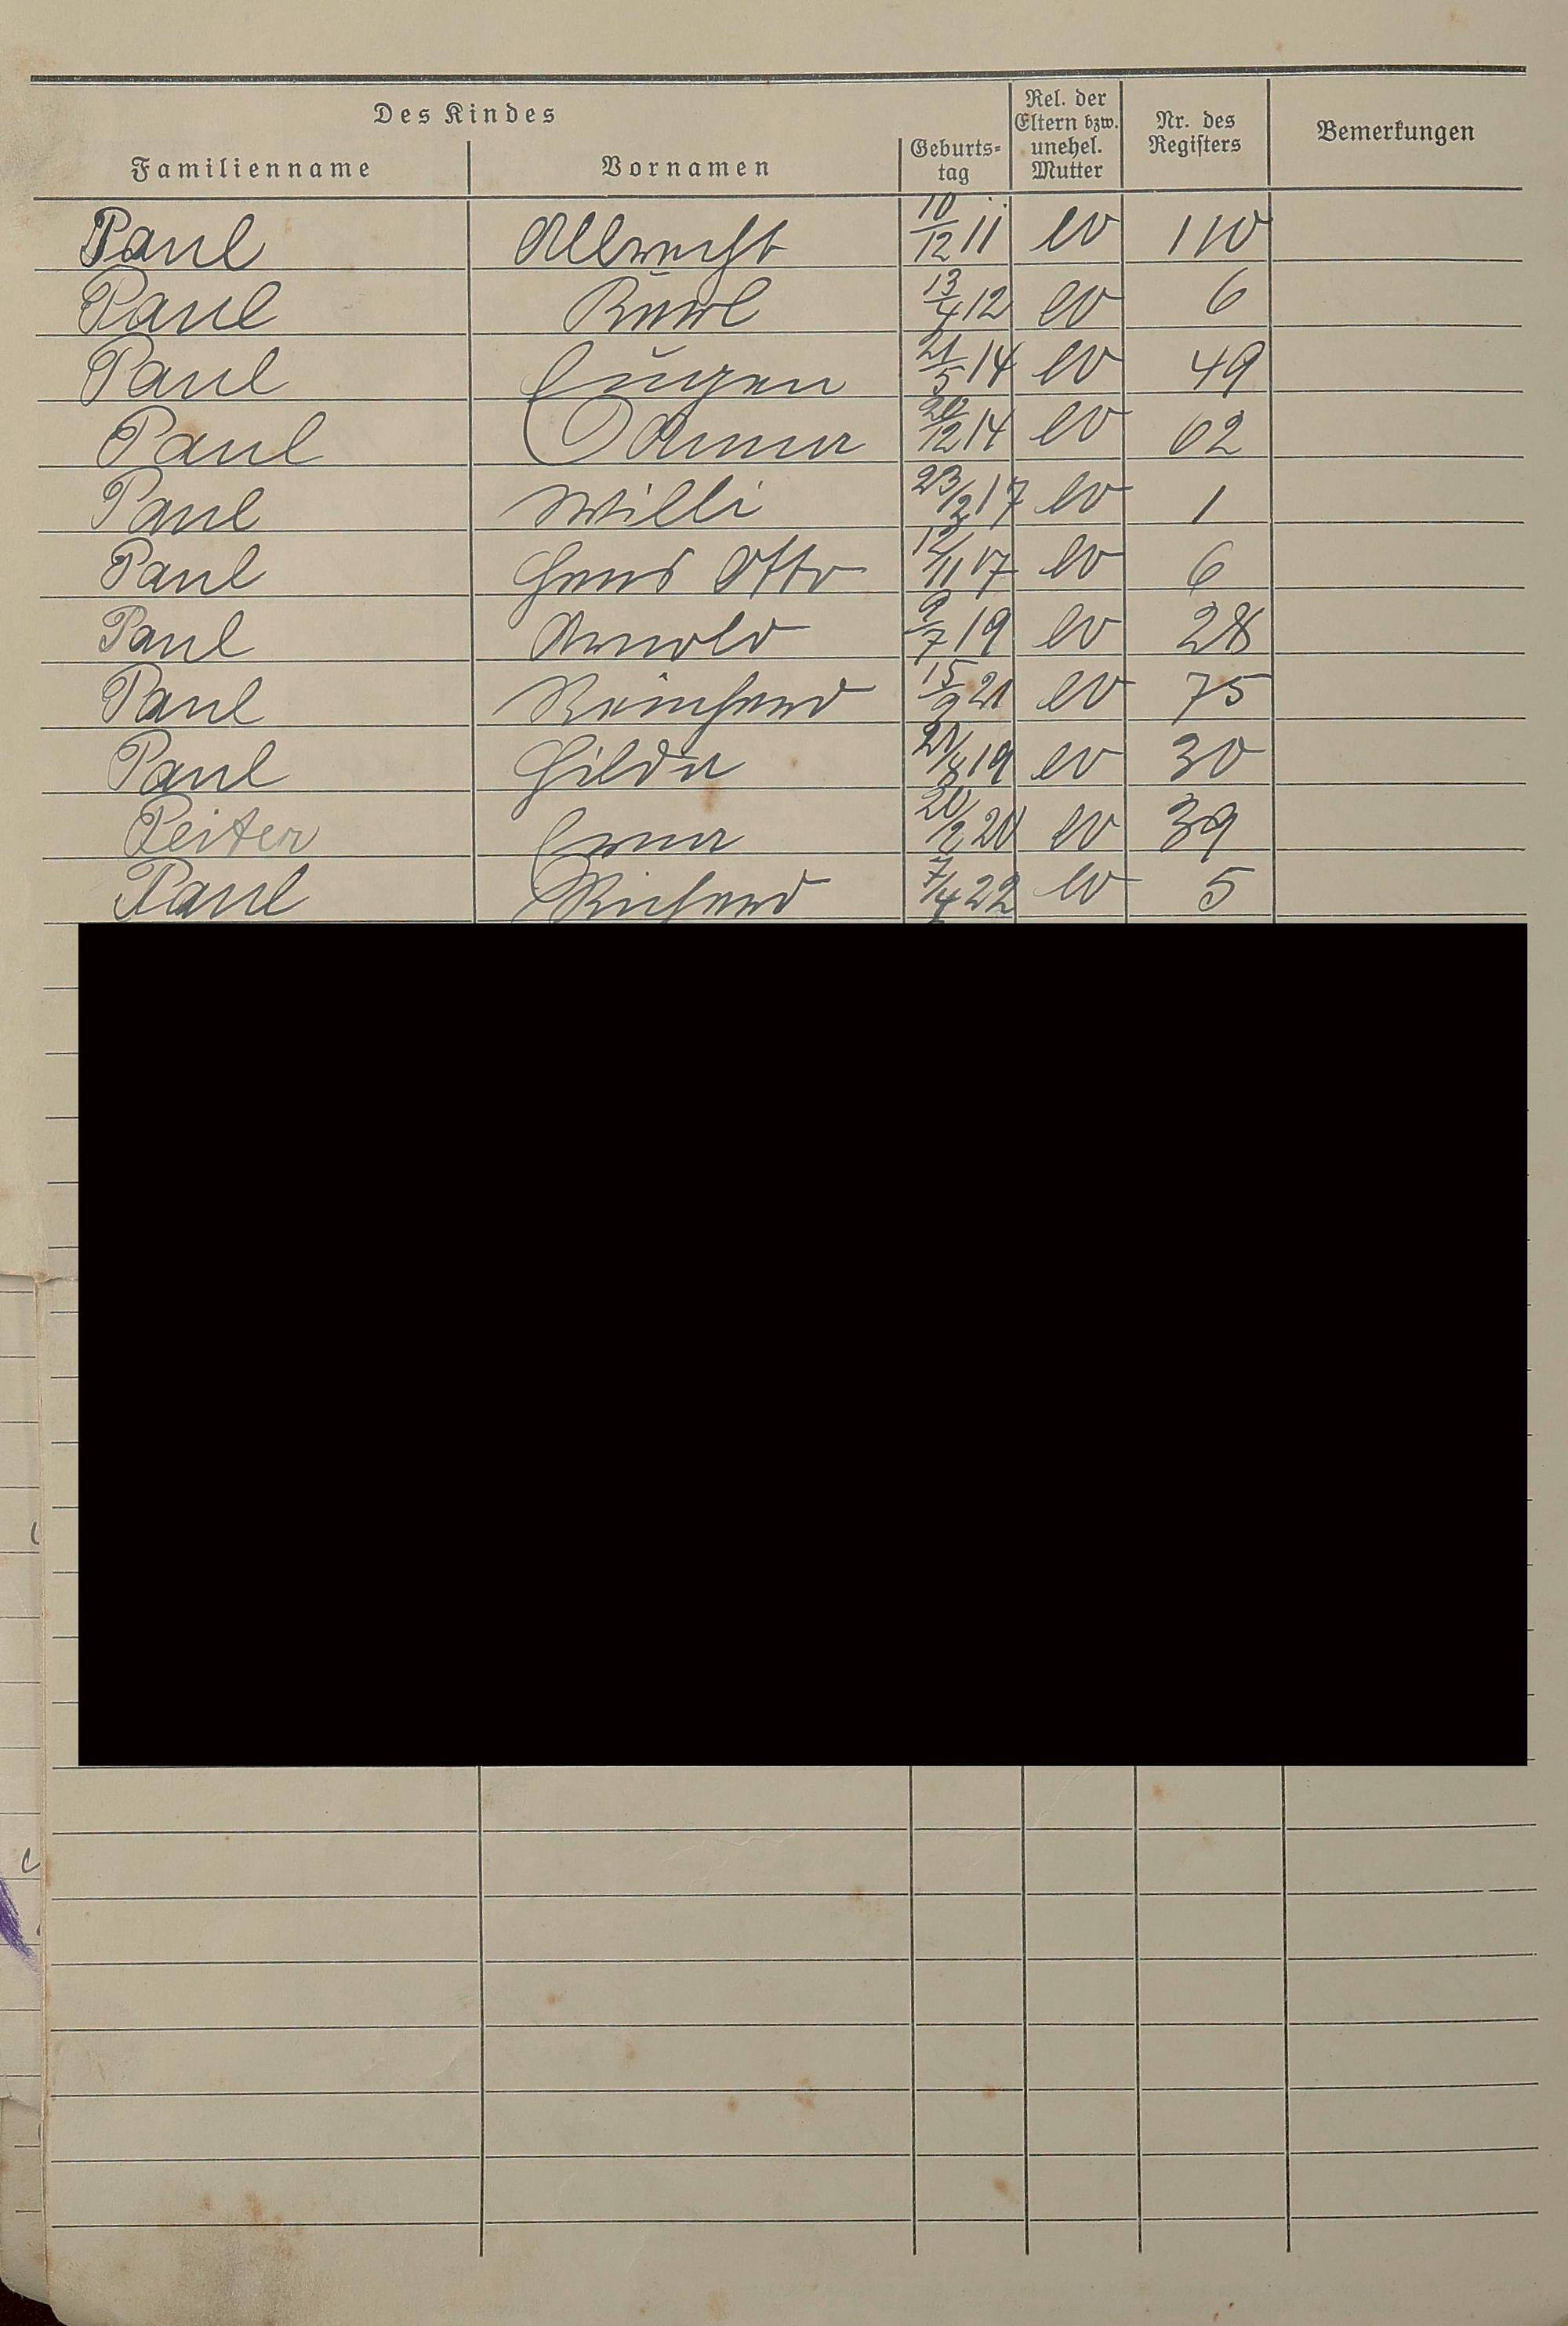 Des Kindes
Familienname Vornamen Geburts-tag Rel. der Eltern bzw. unehel. Mutter Nr. des Registers Bemerkungen
Paul Albrecht 10/12 11 ev 110
Paul Kurl 13/4 12 ev 6
Paul Eugen 21/5 14 ev 49
Paul Anna 20/12 14 ev 62
Paul Willi 23/2 17 ev 1
Paul Hans Otto 12/11 17 ev 6
Paul Arnold 9/7 19 ev 28
Paul Reinhard 15/9 21 ev 75
Paul Hilda 21/8 19 ev 30
Peiter Erna 20/2 20 ev 39
Paul Richard 7/4 22 ev 5